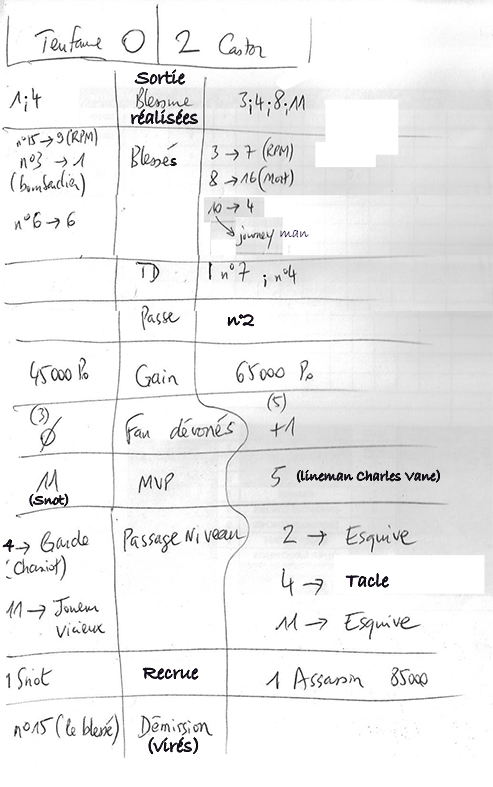 Tenfame 0 | 2 Castor
Sortie
1;4 Blessure 3;4;8;11
réalisées
n°15 → 9 (RPM)
n°3 → 1 Blessés 3 → 7 (RPM)
(bombardier) 8 → 16 (Mort)
n°6 → 6 10 → 4
journey man
TD 1 n°7 ; n°4
Passe n°2
45000 Po Gain 65000 Po
(3) (5)
Ø Fan dévoués +1
11 MVP 5 (lineman Charles Vane)
(Snot)
4 → Garde Passage Niveau 2 → Esquive
(Chariot) 4 → Tacle
11 → Joueur 11 → Esquive
Vicieux
1 Snot Recrue 1 Assassin 85000
n°15 (le blessé) Démission
(virés)